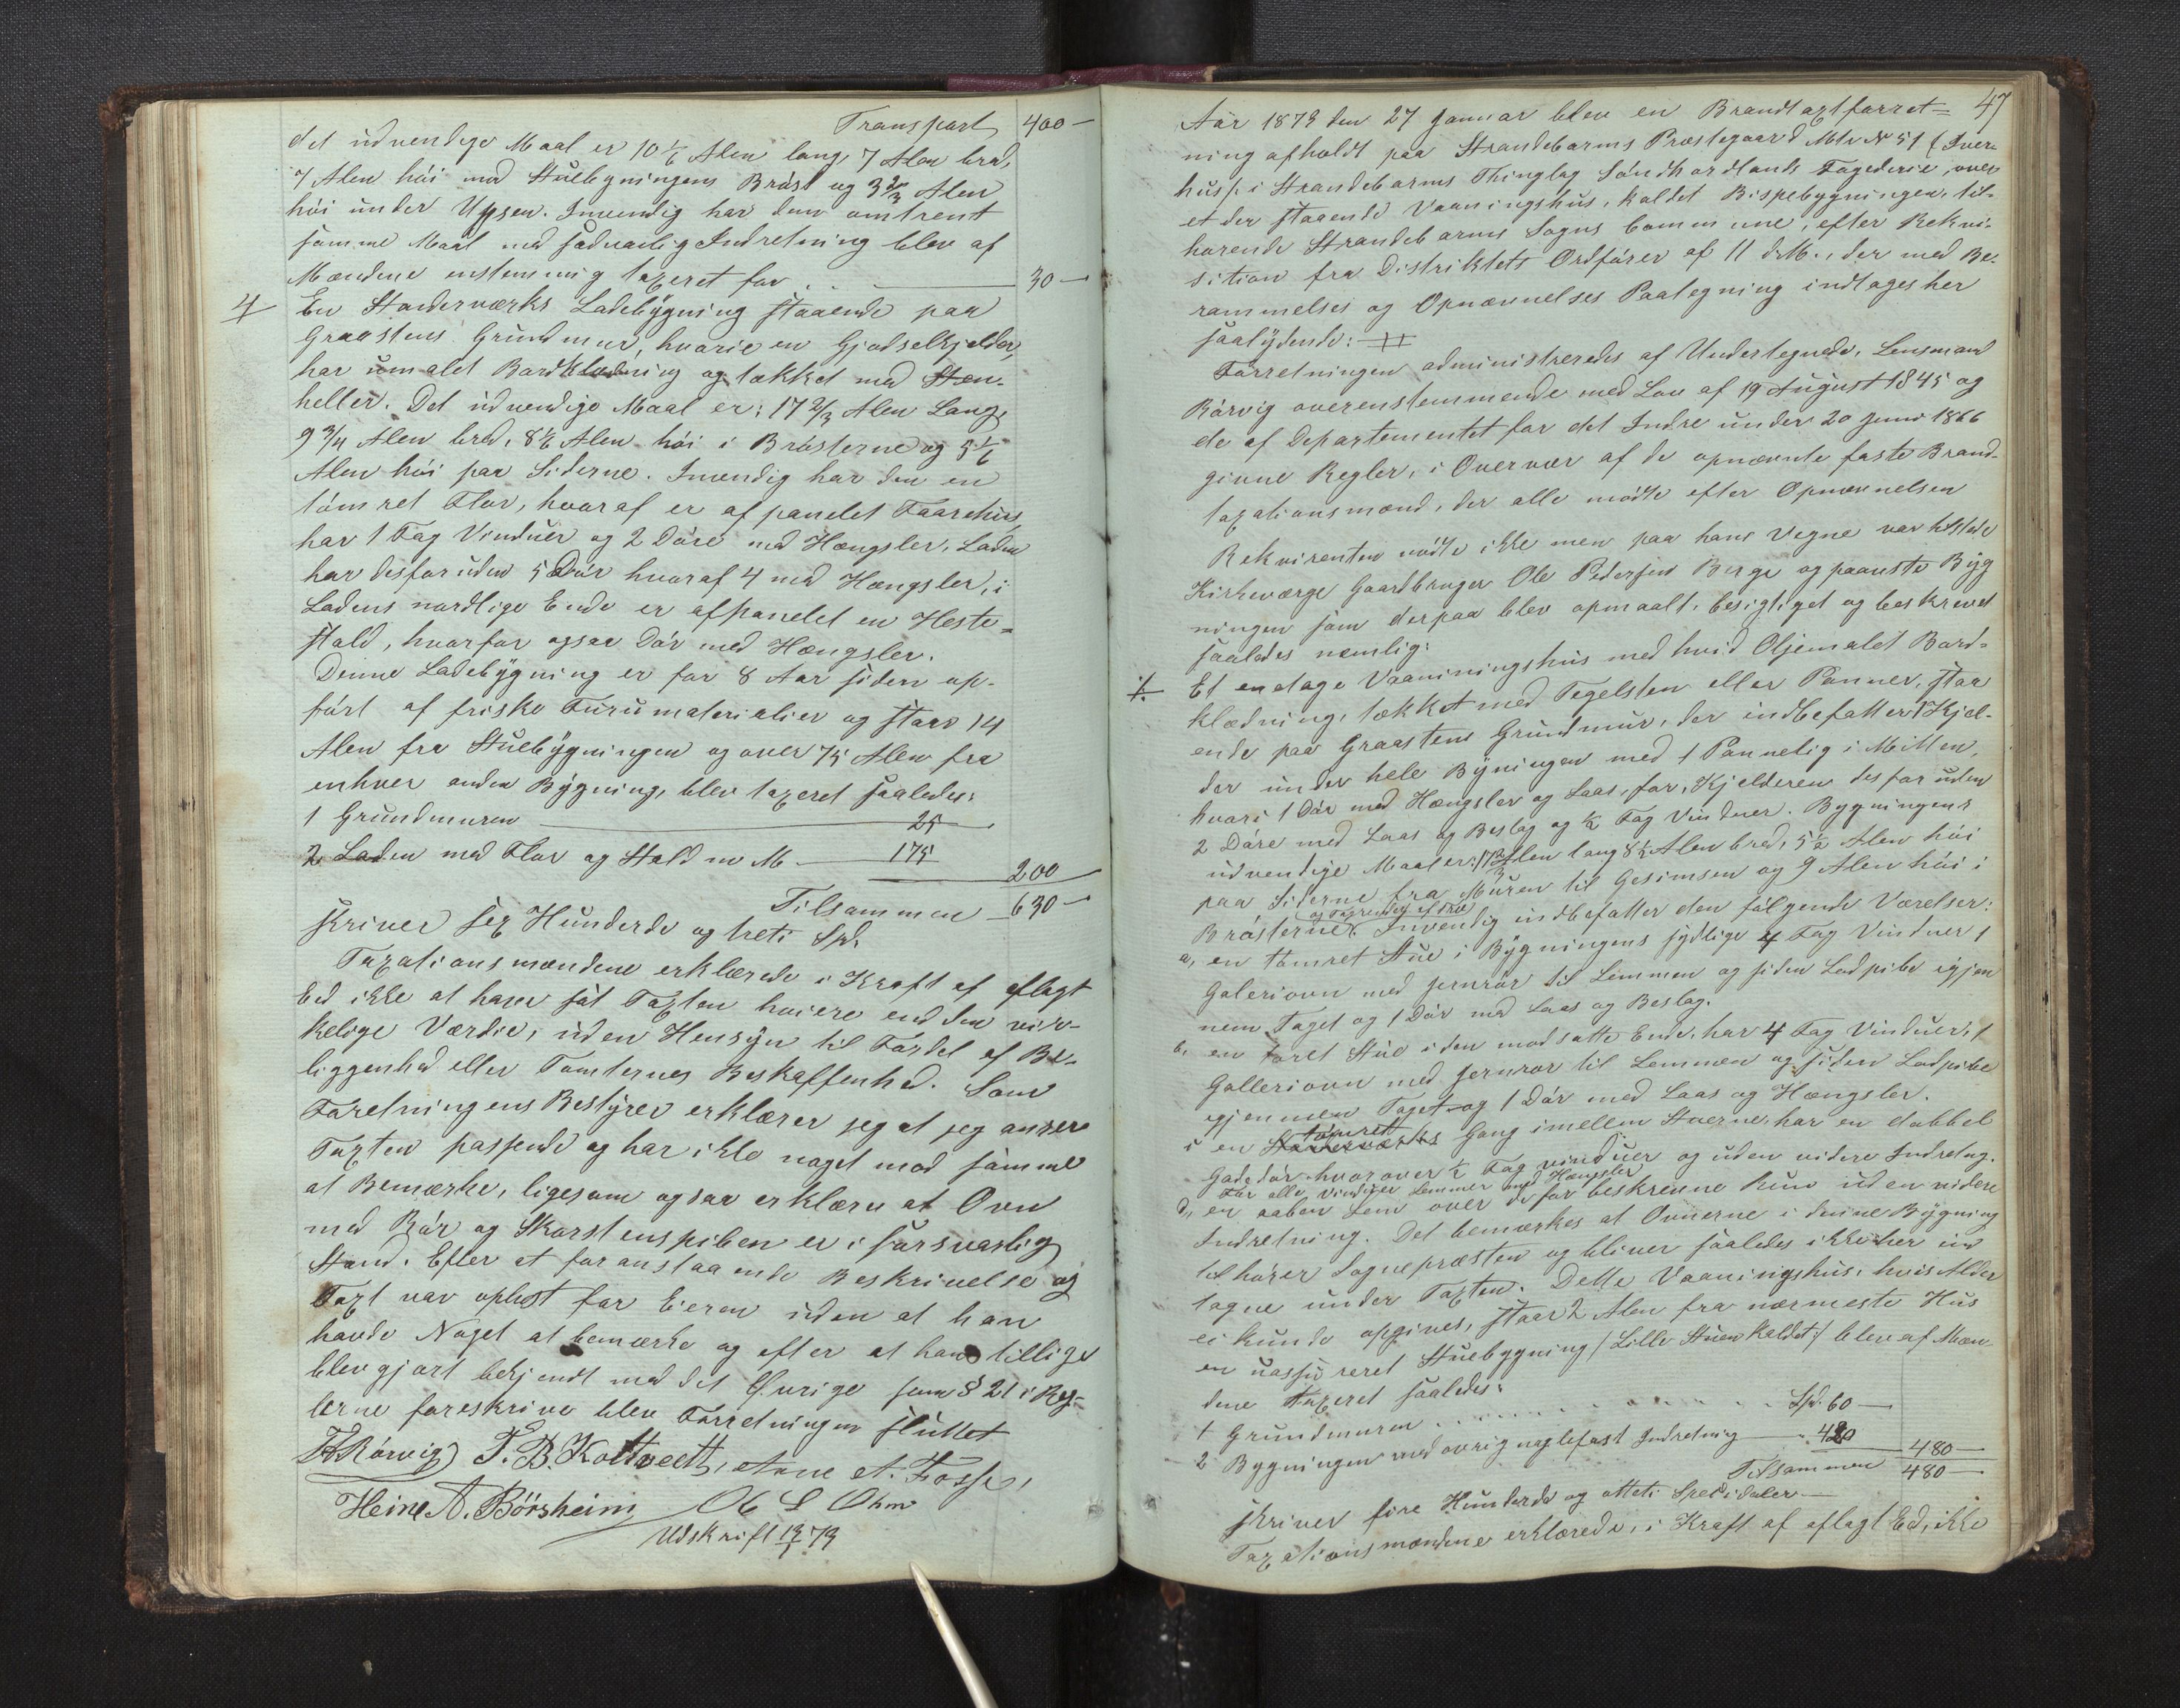 Transport 400 —
det udvendige Maal er 10 1/6 Alen lang, 7 Alen bred,
7 Alen höi med Stuebygningens Bröst og 3 2/3 Alen
höi under Upsen. Invendig har den omtrent
samme Maal med sædvanlig Indretning blev af
Mændene enstemmig taxeret for 30 —
4 En Stavderværks Ladebÿgning staaende paa
Graastens Grundmur, hvorie en Gjödselkjelder,
har umalet Bordklædning og tækket med Sten-
heller. Det udvendige Maal er: 17 2/3 Alen Lang,
9 3/4 Alen bred, 8 1/2 Alen höi i Brösterne og 5 1/6
Alen höi paa Siderne. Invendig har den en
tömret Flor, hvoraf er afpanelet Faarehus,
har 1 Fag Vinduer og 2 Döre med Hængsler, Laden
har desforuden 5 Dör hvoraf 4 med Hængsler, i
Ladens nordlige Ende er afpanelet en Heste-
stald, hvorfor ogsaa Dör med Hængsler.
Denne Ladebÿgning er for 8 Aar siden op-
fört af friske Furumaterialier og staar 14
Alen fra Stuebÿgningen og over 75 Alen fra
enhver anden Bÿgning, blev taxeret saaledes:
1 Grundmuren 25
2 Laden med Flor og Stald m M. 175
200
Tilsammen 630 —
skriver sex Hunderde og treti Spd.
Taxationsmændene erklærede i Kraft af aflagt
Ed ikke at have sat Taxten höiere end den vir-
kelige Værdie, uden Hensÿn til Fordel af Be-
liggenhed eller Tomternes Beskaffenhed. Som
Forretningens Bestÿrer erklærer jeg at jeg anseer
Taxten passende og har ikke noget mod samme
at Bemærke, ligesom ogsaa erklære at Ovn
med Rör og Skorstenspiben er i forsvarlig
Stand. Efter at foranstaaende Beskrivelse og
Taxt var oplæst for Eieren uden at han
havde Noget at bemærke og efter at han tillige
blev gjort bekjendt med det Øvrige som § 21 i Reg-
lerne foreskrive blev Forretningen sluttet
Rörvig T. B. Kottveett, Arne A. Fosse,
Heine A. Börsheim Ole L Ohm
Udskrift 13/1 79
47
Aar 1879 den 27 Januar blev en Brandtaxtforret-
ning afholdt paa Strandebarms Præstegaard Mtr No 51 (Iver-
hus) i Strandebarms Thinglag Söndhordlands Fogederie, over
et der staaende Vaaningshus, kaldet Bispebygningen, til-
hörende Strandebarms Sogns Commune, efter Rekvi-
sition fra Distriktets Ordförer af 11 d.M., der med Be-
rammelses og Opnævnelses Paategning indtages her
saalÿdende: ++
Forretningen administreredes af Undertegnede, Lensmand
Rörvig overenstemmende med Lov af 19 August 1845 og
de af Departementet for det Indre under 20 Juni 1866
givne Regler, i Overvær af de opnævnte faste Brand-
taxationsmænd, der alle mödte efter Opnævnelsen
Rekvirenten mödte ikke men paa hans Vegne var tilstede
Kirkeværge Gaardbruger Ole Pedersen Berge og paaviste Bÿg
ningen som derpaa blev opmaalt, besigtiget og beskrevet
saaledes nemlig:
1. Et enetage Vaaningshus med hvid Oljemalet Bord-
klædning, tækket med Tegelsten eller Panner, staa
ende paa Graastens Grundmur, der indbefatter 1 Kjel-
der under hele Bÿningen med 1 Pannelig i Mitten,
hvori 1 Dör med Hængsler og Laas, for, Kjelderen desforuden
2 Döre med Laas og Beslag og 1/2 Fag Vinduer. Bygningens
udvendige Maal er: 17 2/3 Alen lang 8 1/2 Alen bred, 5 1/2 Alen höi
paa Siderne fra Muren til Gesimsen og 9 Alen höi i
Brösterne. Invendig indbefatter den fölgende Værelser:
a, en tömret Stue i Bÿgningens sÿdlige 4 Fag Vinduer 1
Galeriovn med Jernrör til Lemmen og siden Ladpibe igjen
nem Taget og 1 Dör med Laas og Beslag.
b, en toret Stue i den modsatte Ende, har 4 Fag Vinduer, 1
Galleriovn med Jernror til Lemmen og siden Ladpibe
igjennem Taget og 1 Dör med Laas og Hængsler.
tömrett
c en Stavværks Gang imellem Stuerne, har en dobbel
Gadedör hvorover 1/2 Fag vinduer og uden videre Indretng.
For alle vinduer Lemmer med Hængsler
d, en aaben Lem over de for beskrevne Rum uden videre
Indretning. Det bemærkes at Ovnerne i denne Bÿgning
tilhörer Sognepræsten og bliver saaledes ikke her ind
tagne under Taxten. Dette Vaaningshus, hvis Alder
ei kunde opgives, staar 2 Alen fra nærmeste Hus
en uassureret Stuebygning /: Lille Stuen kaldet :/ blev af Mæn-
dene taxeret saaledes:
1 Grundmuren Spd. 60 —
2 Bygningen med övrig naglefast Indretning 420 480 —
Tilsammen 480 —
skriver fire Hunderde og otteti Speciedaler —
Taxationsmændene erklærede, i Kraft af aflagt Ed, ikke